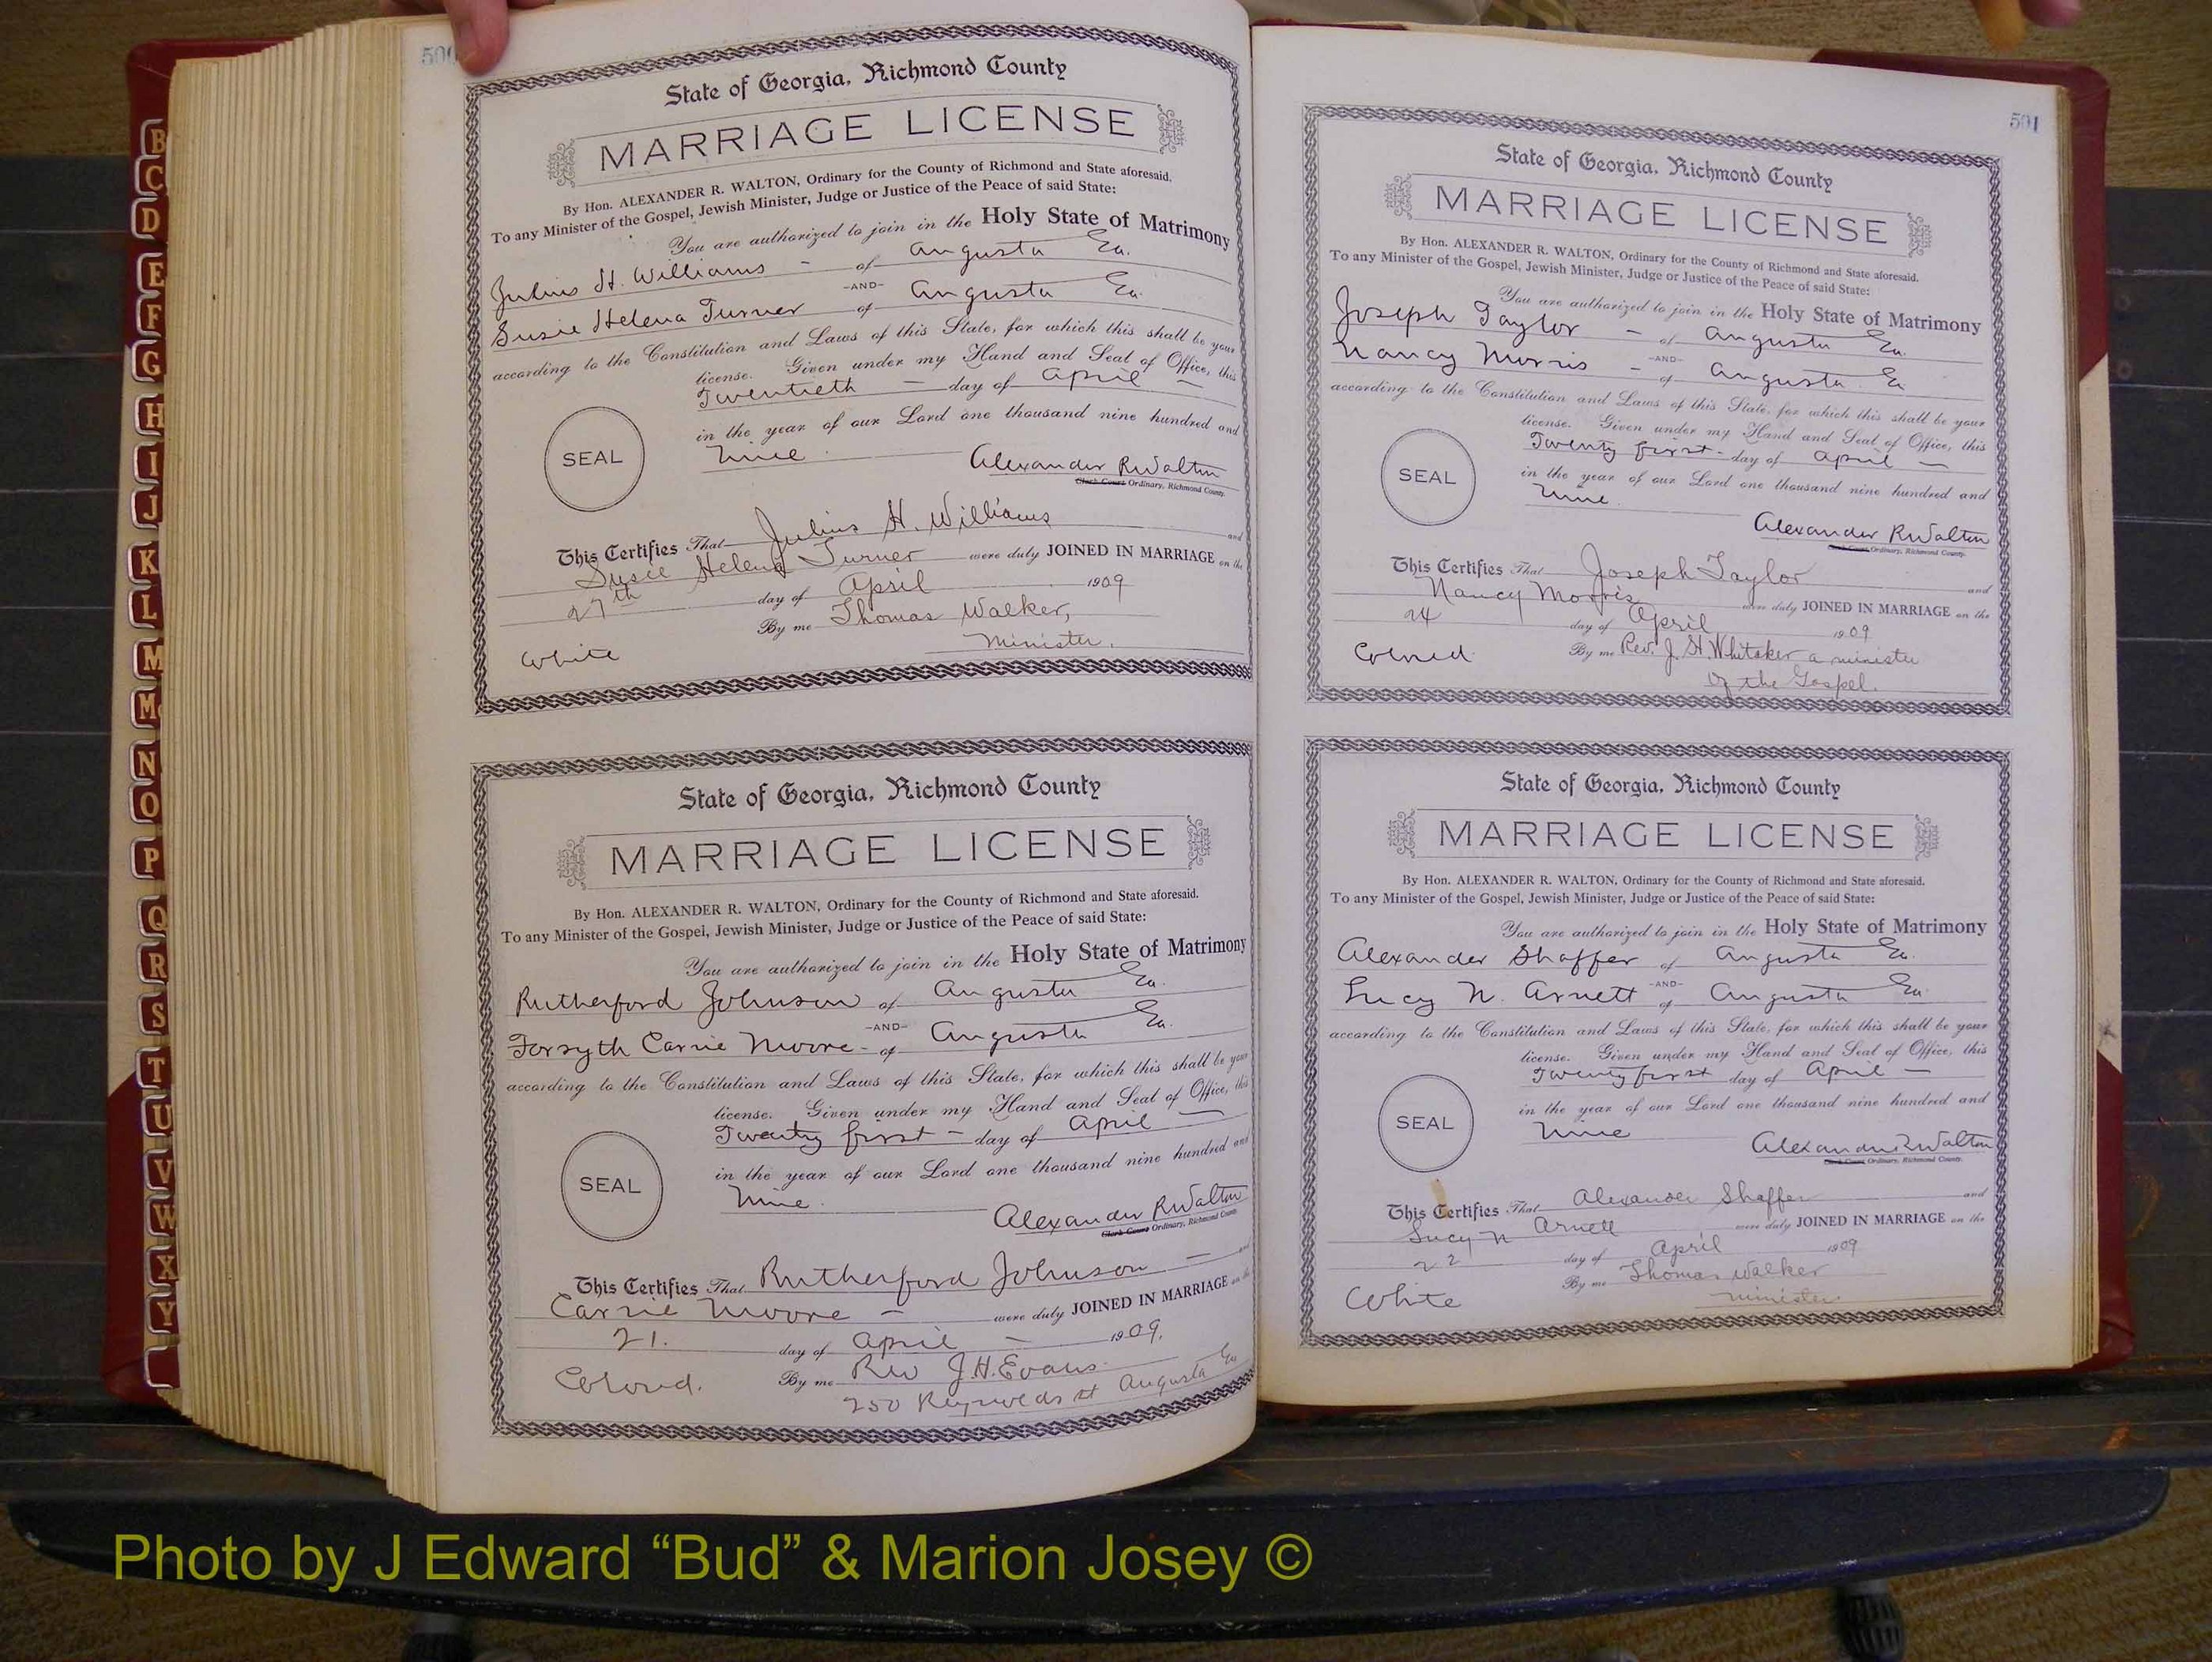 B
C
D
E
F
G
H
I
J
K
L
M
Mc
N
O
P
Q
R
S
T
U
V
W
X
Y
500
State of Georgia, Richmond County
MARRIAGE LICENSE
By Hon. ALEXANDER R. WALTON, Ordinary for the County of Richmond and State aforesaid.
To any Minister of the Gospel, Jewish Minister, Judge or Justice of the Peace of said State:
You are authorized to join in the Holy State of Matrimony
Julius H. Williams - of Augusta Ga.
-AND-
Susie Helena Turner of Augusta Ga.
according to the Constitution and Laws of this State, for which this shall be your
license. Given under my Hand and Seal of Office, this
Twentieth - day of April -
in the year of our Lord one thousand nine hundred and
nine.
SEAL
Alexander R Walton
Clerk Court Ordinary, Richmond County.
This Certifies That Julius H. Williams and
Susie Helena Turner were duly JOINED IN MARRIAGE on the
27th day of April 1909
By me Thomas Walker,
Minister.
White
State of Georgia, Richmond County
MARRIAGE LICENSE
By Hon. ALEXANDER R. WALTON, Ordinary for the County of Richmond and State aforesaid.
To any Minister of the Gospel, Jewish Minister, Judge or Justice of the Peace of said State:
You are authorized to join in the Holy State of Matrimony
Rutherford Johnson of Augusta Ga.
-AND-
Forsyth Carrie Moore - of Augusta Ga.
according to the Constitution and Laws of this State, for which this shall be your
license. Given under my Hand and Seal of Office, this
Twenty first - day of April -
in the year of our Lord one thousand nine hundred and
nine.
SEAL
Alexander R Walton
Clerk Court Ordinary, Richmond County.
This Certifies That Rutherford Johnson - and
Carrie Moore - were duly JOINED IN MARRIAGE on the
21. day of April - 1909.
By me Rev J.H. Evans
250 Reynolds St Augusta Ga
Colored.
501
State of Georgia, Richmond County
MARRIAGE LICENSE
By Hon. ALEXANDER R. WALTON, Ordinary for the County of Richmond and State aforesaid.
To any Minister of the Gospel, Jewish Minister, Judge or Justice of the Peace of said State:
You are authorized to join in the Holy State of Matrimony
Joseph Taylor - of Augusta Ga.
-AND-
Nancy Morris - of Augusta Ga
according to the Constitution and Laws of this State, for which this shall be your
license. Given under my Hand and Seal of Office, this
Twenty first - day of April -
in the year of our Lord one thousand nine hundred and
nine.
SEAL
Alexander R Walton
Clerk Court Ordinary, Richmond County.
This Certifies That Joseph Taylor and
Nancy Morris were duly JOINED IN MARRIAGE on the
24 day of April 1909
By me Rev. J. H. Whitaker a minister
of the Gospel.
Colored
State of Georgia, Richmond County
MARRIAGE LICENSE
By Hon. ALEXANDER R. WALTON, Ordinary for the County of Richmond and State aforesaid.
To any Minister of the Gospel, Jewish Minister, Judge or Justice of the Peace of said State:
You are authorized to join in the Holy State of Matrimony
Alexander Shaffer of Augusta Ga.
-AND-
Lucy N. Arnett of Augusta Ga
according to the Constitution and Laws of this State, for which this shall be your
license. Given under my Hand and Seal of Office, this
Twenty first day of April -
in the year of our Lord one thousand nine hundred and
nine
SEAL
Alexander R Walton
Clerk Court Ordinary, Richmond County.
This Certifies That Alexander Shaffer and
Lucy N Arnett were duly JOINED IN MARRIAGE on the
22 day of April 1909
By me Thomas Walker
minister
White
Photo by J Edward “Bud” & Marion Josey ©